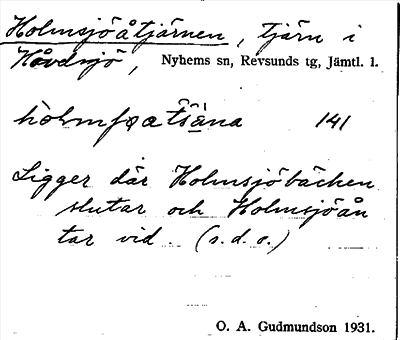 Holmsjöåtjärnen, tjärn i
Håvdsjö, Nyhems sn, Revsunds tg, Jämtl. l.
141
Ligger där Holmsjöbäcken
slutar och Holmsjöån
tar vid. (s.d.o.)
O. A. Gudmundson 1931.